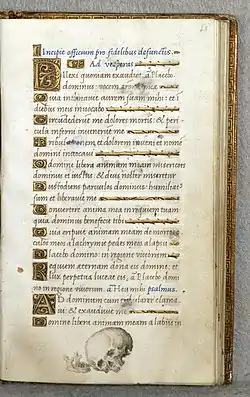 Incipit officium pro fidelibus defunctis.
Ad vesperas
Ilexi quoniam exaudiet, a Placebo
dominus: vocem
Quia inclinavit aurem suam mihi: et i
diebus meis invocabo
Circundederut me dolores mortis: & peri
cula inferni invenerut me
Tribulationem et dolorem inveni et nomen
domini invocavi
O domine libera animam meam misericors
dominus et iustus: & deus noster miseretur
Custodiens parvulos dominus: humiliatus
sum et liberavit me
Convertere anima mea in requiem tuam
quia dominus benefecit tibi
Quia eripuit animam meam de morte
oculos meos a lachrymis pedes meos a lapsu
Placebo domino: in regione vivorum
Requiem aeternam dona eis domine: et
lux perpetua luceat eis, a Placebo domi
no in regione vivorum. a Hea mihi psalmus.
AD dominum cum tribularer clama
vi: & exaudivit me
Domine libera animam meam a labiis in